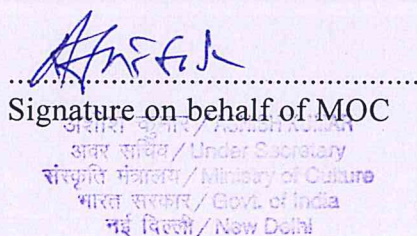 Signature on behalf of MOC
कुमार / ASHISH KUMAR
अवर सचिव / Under Secretary
संस्कृति मंत्रालय / Ministry of Culture
भारत सरकार / Govt. of India
नई दिल्ली / New Delhi